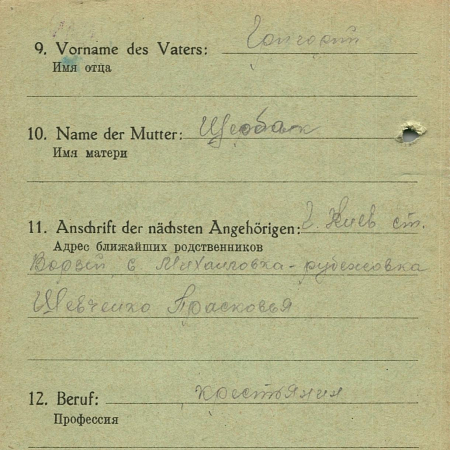 9. Vorname des Vaters: Григорий
Имя отца
10. Name der Mutter: Щербак
Имя матери
11. Anschrift der nächsten Angehörigen: г. Киев ст.
Адрес ближайших родственников
с Михайловка-рубежовка
Шевченко Прасковья
12. Beruf: крестьянин
Профессия